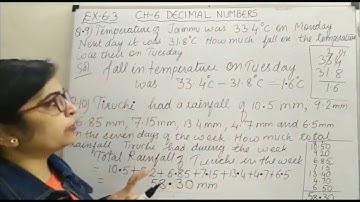 EX-6.3 CH-6 DECIMAL NUMBERS
Q.9) Temperature of Jammu was 33.4°C on Monday
Next day it was 31.8°C How much fall in the temperature
was there on Tuesday
Sol fall in temperature on Tuesday
was 33.4°C - 31.8°C = 1.6°C
33.4
31.8
1.6
Tiruchi had a rainfall of 10.5 mm, 9.2 mm
6.85 mm, 7.15 mm, 13.4 mm, 4.7 mm and 6.5 mm
in the seven days of the week. How much total
Tiruchi had during the week
Total Rainfall of Tiruchi in the week
10.5 + + 6.85 + 7.15 + 13.4 + 4.7 + 6.5
= 58.30 mm
10.50
9.20
6.85
13.40
4.70
6.50
58.30